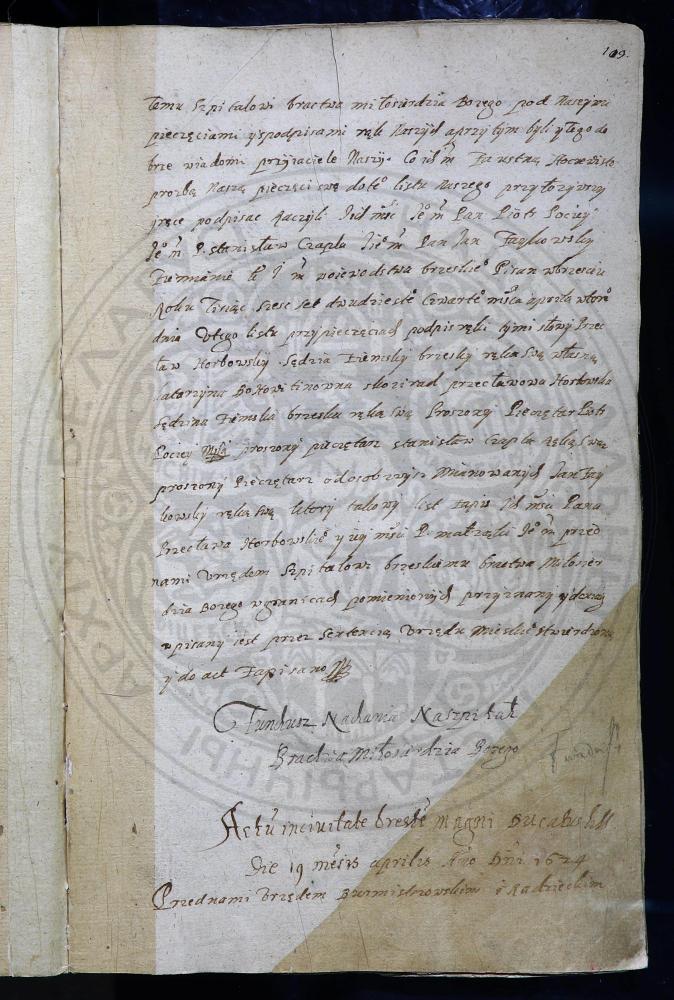 109.
Temu Szpitalowi bractwa miłosierdzia Bozego pod Naszymi
pieczęciami y spodpisami rąk Naszych a przy tym byli y tego do
brze wiadomi przyiaciele Naszy. Co ich m
prozbę Naszą pieczęci swe do te listu Naszego przyłozywszy
ręce podpisac raczyli Jch mśc Je m Pan Piotr Pociey
Je m P. Stanisław Czapla Je m Pan Jan Faykowsky
Ziemianie Je K m woiewodstwa brzeskie Pisan w brzesciu
Roku Tisiąc szesc set dwudzieste Czwarte mśca aprila wtore
dnia U tego listu przy pieczęciach podpis ręki tymi słowy Prec
ław Horbowsky Sędzia Ziemsky brzesky ręką swą własną
Katarzyna Bohowitinowna Kozirad przecławowa Horbowska
Sędzina Ziemska brzeska ręką swą Proszony Pieczętarz Piotr
Pociey proszony pieczętarz Stanisław Czapla ręką swą
proszony Pieczętarz od osob wysz Mianowanych Jan Fay
kowsky ręką swą ktory takowy list zapis Jch mści Pana
Przecława Horbowskie y iey mści P. małząki Je m przed
nami Urzędem Szpitalowi brzeskiemu bractwa Miłosier
dzia Bozego w granicach pomienionych przyznany y do xiąg
w pisany iest przez Sentencią Urzędu Mieskie stwierdzony
y do act zapisano
Fundusz Nadania Na szpital
Bractwa Miłosierdzia Bozego
Actu in civitate breste Magni Ducatus Litt
Die 19 mesis aprilis Ano Dni 1624
Przed nami Urzędem Burmistrzowskim i Radzieckim